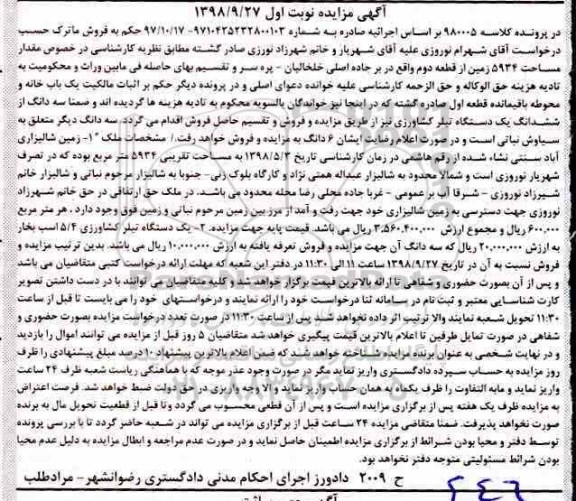 آگهی مزایده نوبت اول ۱۳۹۸/۹/۲۷
در پرونده کلاسه ۹۸۰۰۰۵ بر اساس اجرائیه صادره به شماره ۹۷۱۰۴۲۵۲۳۲۸۰۰۱۰۳-۹۷/۱۰/۱۷ حکم به فروش ماترک حسب
درخواست آقای شهرام نوروزی علیه آقای شهریار و خانم شهرزاد نوروزی صادر گشته مطابق نظریه کارشناسی در خصوص مقدار
مساحت ۵۹۳۴ زمین از قطعه دوم واقع در بر جاده اصلی خلخالیان - پره سر و تقسیم بهای حاصله فی مابین وراث و محکومیت به
تادیه هزینه حق الوکاله و حق الزحمه کارشناسی علیه خوانده دعوای اصلی و در پرونده دیگر حکم بر اثبات مالکیت یک باب خانه و
محوطه باقیمانده قطعه اول صادره گشته که در اینجا نیز خواندگان بالسویه محکوم به تادیه هزینه ها گردیده اند و ضمنا سه دانگ از
ششدانگ یک دستگاه تیلر کشاورزی نیز از طریق مزایده و فروش و تقسیم حاصل فروش اقدام می گردد سه دانگ دیگر متعلق به
سیاوش نباتی است و در صورت اعلام رضایت ایشان ۶ دانگ به مزایده و فروش خواهد رفت./ مشخصات ملک "۱- زمین شالیزاری
آباد سنتی نشاء شده از رقم هاشمی در زمان کارشناسی تاریخ ۱۳۹۸/۵/۳ به مساحت تقریبی ۵۹۳۴ متر مربع بوده که در تصرف
شهریار نوروزی است و شمالا محدود به شالیزار عبداله همتی نژاد و کارگاه بلوک زنی- جنوبا به شالیزار مرحوم نباتی و شالیزار خانم
شیرزاد نوروزی - شرقا آب بر عمومی - غربا جاده محلی رضا محله محدود می باشد. در ملک حق ارتفاقی در حق خانم شهرزاد
نوروزی جهت دسترسی به زمین شالیزاری خود جهت رفت و آمد از مرز بین زمین مرحوم نباتی و زمین فوق وجود دارد . هر متر مربع
۶۰۰,۰۰۰ ریال و مجموع ارزش ۳,۵۶۰,۴۰۰,۰۰۰ ریال می باشد. قیمت پایه جهت مزایده. ۲- یک دستگاه تیلر کشاورزی ۵/۴ اسب بخار
به ارزش ۲۰,۰۰۰,۰۰۰ ریال که سه دانگ آن جهت مزایده و فروش تعرفه یافته به ارزش ۱۰,۰۰۰,۰۰۰ ریال می باشد. بدین ترتیب مزایده و
فروش نسبت به آن در تاریخ ۱۳۹۸/۹/۲۷ ساعت ۱۱ الی ۱۱:۳۰ در دفتر این شعبه که مهلت ارائه درخواست کتبی متقاضیان می باشد
و پس از آن بصورت حضوری و شفاهی تا ارائه بالاترین قیمت برگزار خواهد شد و کلیه متقاضیان می توانند با در دست داشتن تصویر
کارت شناسایی معتبر و ثبت نام در سامانه ثنا درخواست خود را ارائه نمایند و درخواستهای خود را می بایست تا قبل از ساعت
۱۱:۳۰ تحویل شعبه نمایند والا ترتیب اثر داده نخواهد شد پس از ساعت ۱۱:۳۰ در صورت تعدد درخواست مزایده بصورت حضوری و
شفاهی در صورت تمایل طرفین تا اعلام بالاترین قیمت پیگیری خواهد شد متقاضیان ۵ روز قبل از مزایده می توانند اموال را بازدید
و در نهایت شخصی به عنوان برنده مزایده شناخته خواهد شد که ضمن اعلام بالاترین پیشنهاد ۱۰ درصد مبلغ پیشنهادی را ظرف
روز مزایده به حساب سپرده دادگستری واریز نماید مگر در صورت وجود عذر موجه که با هماهنگی ریاست شعبه ظرف ۲۴ ساعت
واریز نماید و مابه التفاوت را ظرف یکماه به همان حساب واریز نماید و الا وجه واریزی در حق دولت ضبط خواهد شد. فرصت اعتراض
به مزایده ظرف یک هفته پس از برگزاری مزایده است و پس از آن قطعی محسوب می گردد و تا قبل از قطعیت تحویل مال به برنده
صورت نخواهد پذیرفت. ضمنا متقاضی مزایده ۲۴ ساعت قبل از برگزاری مزایده می تواند در شعبه حاضر گردد تا با بررسی پرونده
توسط دفتر و محیا بودن شرائط از برگزاری مزایده اطمینان حاصل نماید و در صورت عدم مراجعه و ابطال مزایده به دلیل عدم محیا
بودن شرائط مسئولیتی متوجه دفتر نخواهد بود.
ح ۲۰۰۹ دادورز اجرای احکام مدنی دادگستری رضوانشهر- مرادطلب
۲۴۴۶